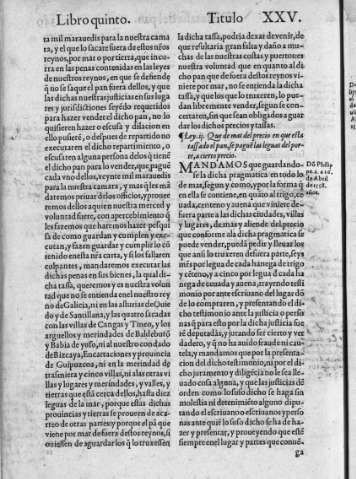 Libro quinto.
Titulo XXV.
ta mil marauedis para la nuestra cama
ra, y el que lo sacare fuera de estos nr̃os
reynos, por mar o por tierra, que incu-
rra en las penas contenidas en las leyes
de nuestros reynos, en que se defiende
q̃ no se saque el pan fuera dellos, y que
las dichas nuestras justicias en sus luga
res y jurisdictiones seyẽdo requeridos
para hazer vender el dicho pan, no lo
quisieren hazer o escusa y dilacion en
ello pusierẽ, o despues de repartido no
executaren el dicho repartimiento, o
escusaren alguna persona delos q̃ tienẽ
el dicho pan para lo vender, que pague
cada vno dellos, veynte mil marauedis
para la nuestra camara, y mas q̃ les mã
daremos priuar delos officios, y proueer
remos dellos a quien nuestra merced y
voluntad fuere, con apercebimiento q̃
les hazemos que haremos hazer pesqui
sa de como guardan y cumplen y exe-
cutan, y hazen guardar y cumplir lo cõ
tenido en esta nr̃a carta, y si los hallaren
culpantes, mandaremos executar las
dichas penas en sus bienes, la qual di-
cha tassa, queremos y es nuestra volun
tad que no se entienda enel nuestro rey
no de Galicia, ni en las asturias de Ouie
do y de Santillana, y las quatro sacadas
con las villas de Cangas y Tineo, y los
arguellos y merindades de Baldeburõ
y Babia de yuso, ni al nuestro condado
de Bizcaya, Encartaciones y prouincia
de Guipuzcoa, ni en la merindad de
trasmiera y cinco villas, ni a las otras vi
llas y lugares y merindades, y valles, y
tierras que està cerca dellos, hasta diez
leguas de la mar, porque estas dichas
prouincias y tierras se proueen de aca-
rreo de otras partes y porque el pã que
viene por mar de fuera destos reynos, si
ouiessen de aguardar los q̃ lo truxessen
la dicha tassa, podria dexar de venir, de
que resultaria gran falta y daño a mu-
chas de las nuestras costas y puertos es
nuestra voluntad que en quanto al di-
cho pan que de fuera destos reynos vi
niere por mar, no se entienda la dicha
tassa, y que los que lo traxeren, lo pue-
dan libremente vender, segun se con-
certaren, sin que sean obligados a guar
dar los dichos precios y tassas.
¶ Ley. ij. Que de mas del precio en que esta
tassado el pan, se paguẽ las leguas del por-
te, a cierto precio.
MANDAMOS que guardando-
se la dicha pragmatica en todo lo
de mas, segun y como, y por la forma q̃
en ella se contiene, en quãto al trigo, ce
uada, centeno y auena que viniere de-
fuera parte a las dichas ciudades, villas
y lugares, de mas y aliende del precio
que conforme ala dicha pragmatica se
puede vender, pueda pedir y lleuar los
que ansi lo truxeren defuera parte, seys
mr̃s por legua de cada hanega de trigo
y cẽteno, y a cinco por legua d̃ cada ha
nega de ceuada y auena, trayendo testi
monio por ante escriuano del lugar dõ
de lo compraren, y presentando el di-
cho testimonio ante la justicia o perso
nas q̃ para esto por la dicha justicia fue
rẽ deputadas, y jurando ser cierto y ver
dadero, y q̃ no ha auido fraude ni cau-
tela, y mandamos que por la presenta-
cion del dicho testimonio, ni por el di-
cho juramento y diligẽcia no le sea lle-
uado cosa alguna, y que las justicias dẽ
orden como lo suso dicho se haga sin
molestia ni detenimiẽto alguno dipu-
tando el escriuano o escriuanos y perso
nas ante quiẽ lo suso dicho se ha de ha-
zer y presentar, y proueyendo que estẽ
siempre en el lugar y partes que conuẽ-
ga